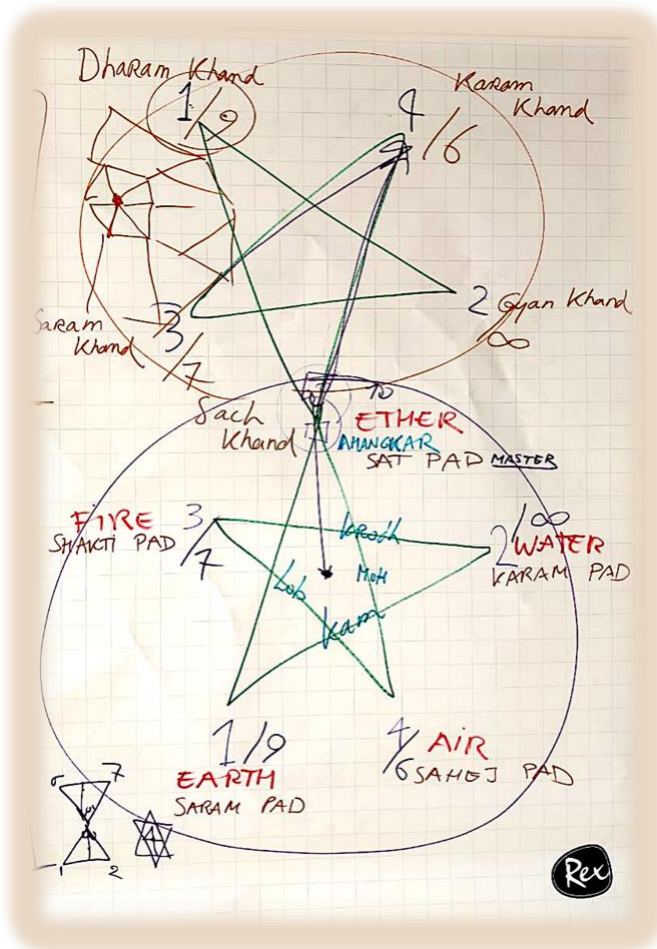 Dharam Khand
1/9
Karam
Khand
4/6
Saram
Khand
3/7
2 Gyan Khand
∞
10
Sach
Khand
ETHER
AHANGKAR
SAT PAD MASTER
FIRE 3/7
SHAKTI PAD
Kroth
2/∞
WATER
KARAM PAD
Lob
MOH
Kam
1/9
EARTH
SARAM PAD
4/6 AIR
SAHEJ PAD
7
1
2
Rex